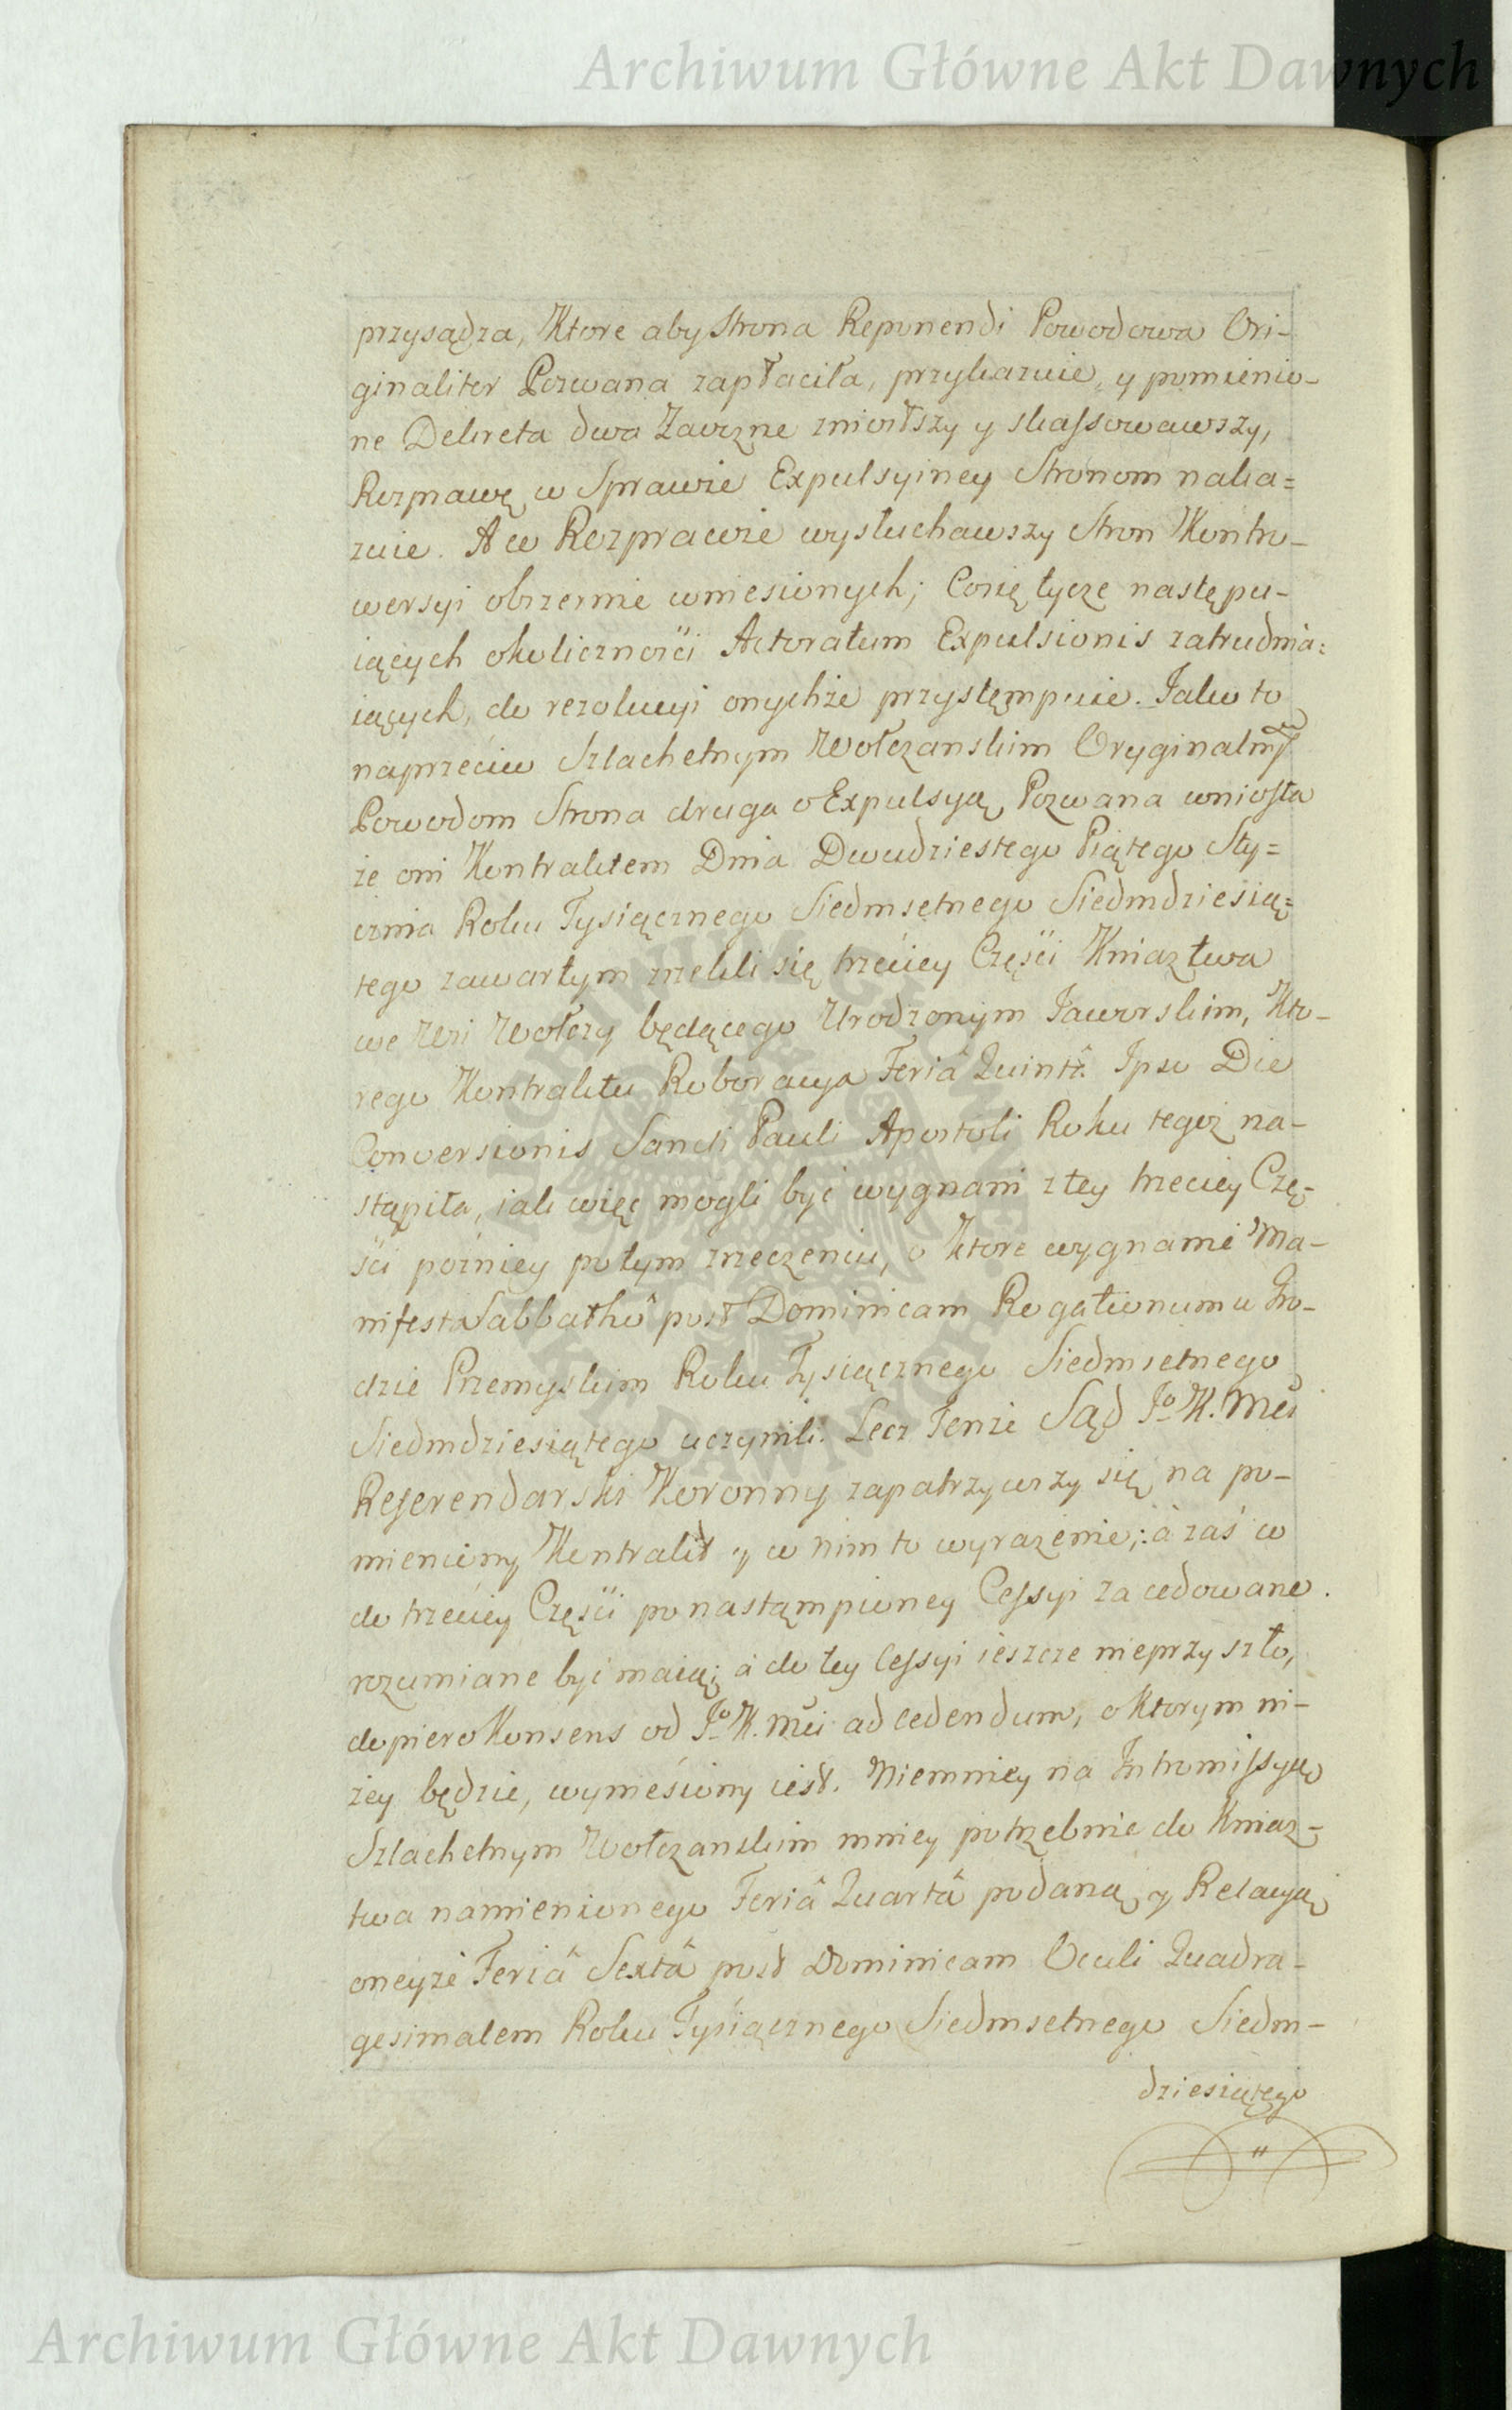 Archiwum Główne Akt Dawnych
przysądza, Ktore aby Strona Reponendi Powodowa Ori-
ginaliter Pozwana zapłaciła, przykazuie, y pomienio-
ne Dekreta dwa Zaoczne zniosłszy y skassowawszy,
Rozprawę w Sprawie Expulsyiney Stronom naka=
zuie. A w Rozprawie wysłuchawszy Stron Kontro-
wersyi obrzernie wniesionych; Co się tycze następu-
iących okolicznosci Actoratum Expulsionis zatrudnia=
iących, do rezolucyi onychże przystęmpuie. Jako to
naprzeciw Szlachetnym Wołczanskim Oryginalnym
Powodom Strona druga o Expulsyą Pozwana wniosła
że oni Kontraktem Dnia Dwudziestego Piątego Sty=
cznia Roku Tysiącznego Siedmsetnego Siedmdziesią=
tego zawartym zrzekli się trzeciey Części Kniaztwa
we Wsi Wołczy będącego Urodzonym Jaworskim, Kto-
rego Kontraktu Roboracya Feriâ Quintâ Ipso Die
Conversionis Sancti Pauli Apostoli Roku tegoż na-
stąpiła, iak więc mogli być wygnani z tey trzeciey Czę-
ści pozniey po tym zrzeczeniu, o Ktore wygnanie Ma-
nifesta Sabbathô post Dominicam Rogationum w Gro-
dzie Przemyskim Roku Tysiącznego Siedmsetnego
Siedmdziesiątego uczynili. Lecz Tenże Sąd Jo K. Mci
Referendarski Koronny zapatrzywszy się na po-
mieniony Kontrakt y w nim to wyrazenie;: à zaś w
do trzeciey Części po nastąmpioney Cessyi za cedowane.
rozumiane być maią; à do tey Cessyi ieszcze nieprzyszło,
dopiero Konsens od Jo K. Mci ad cedendum, o Ktorym ni-
żey będzie, wyniesiony iest. Niemniey na Intromissyą
Szlachetnym Wołczanskim mniey potrzebnie do Kniaz-
twa namienionego Feriâ Quartâ podaną y Relacyą
oneyże Feriâ Sextâ post Dominicam Oculi Quadra-
gesimalem Roku Tysiącznego Siedmsetnego Siedm-
dziesiątego
Archiwum Główne Akt Dawnych